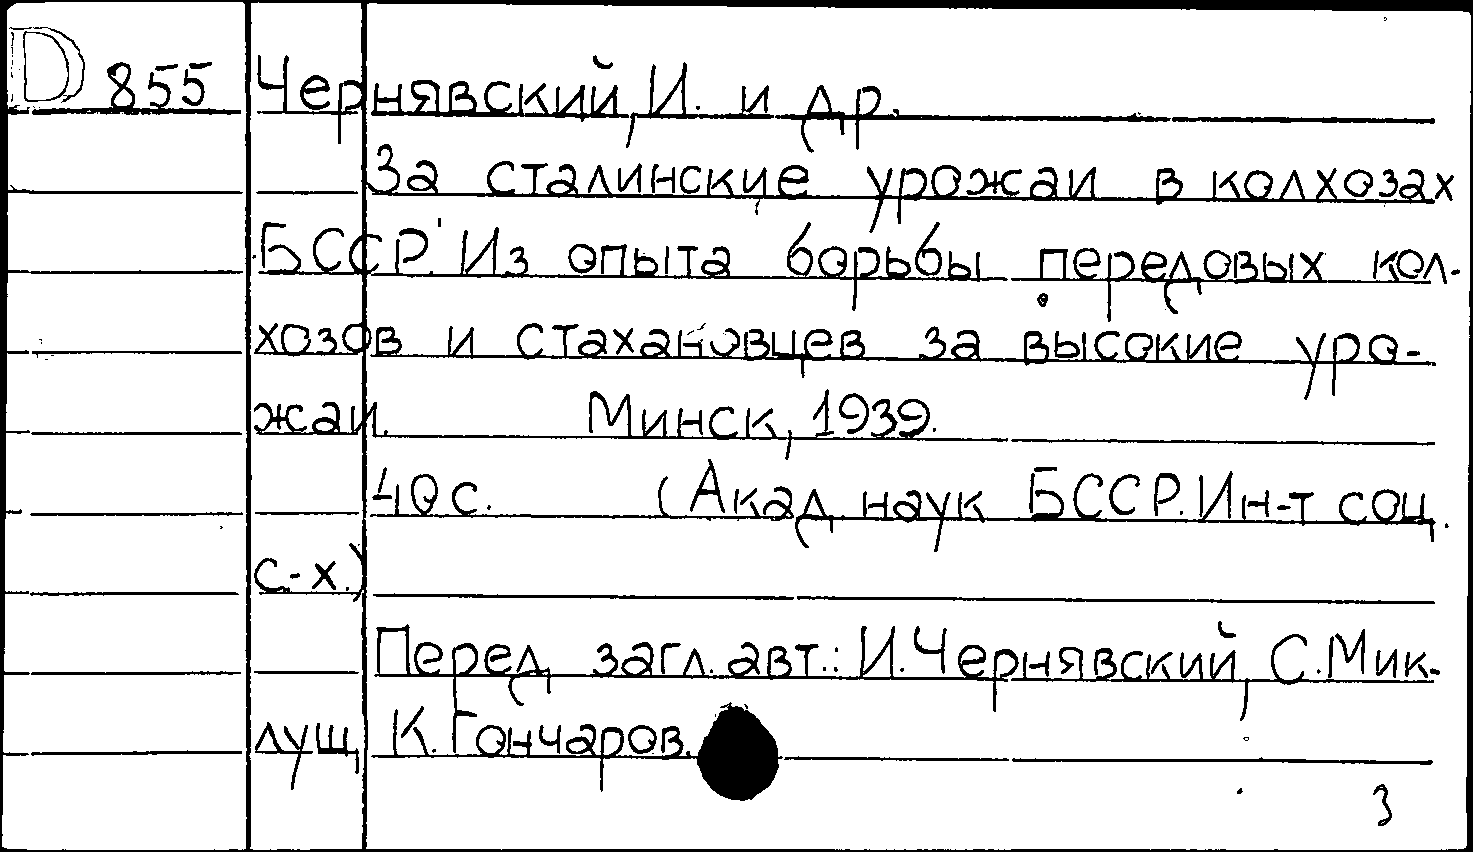 D 855 Чернявский, И. и др.
За сталинские урожаи в колхозах
БССР. Из опыта борьбы передовых кол-
хозов и стахановцев за высокие уро-
жаи. Минск, 1939.
40 с. (Акад. наук БССР. Ин-т соц.
с.-х.)
Перед загл. авт.: И. Чернявский, С. Мик-
лущ, К. Гончаров.
3